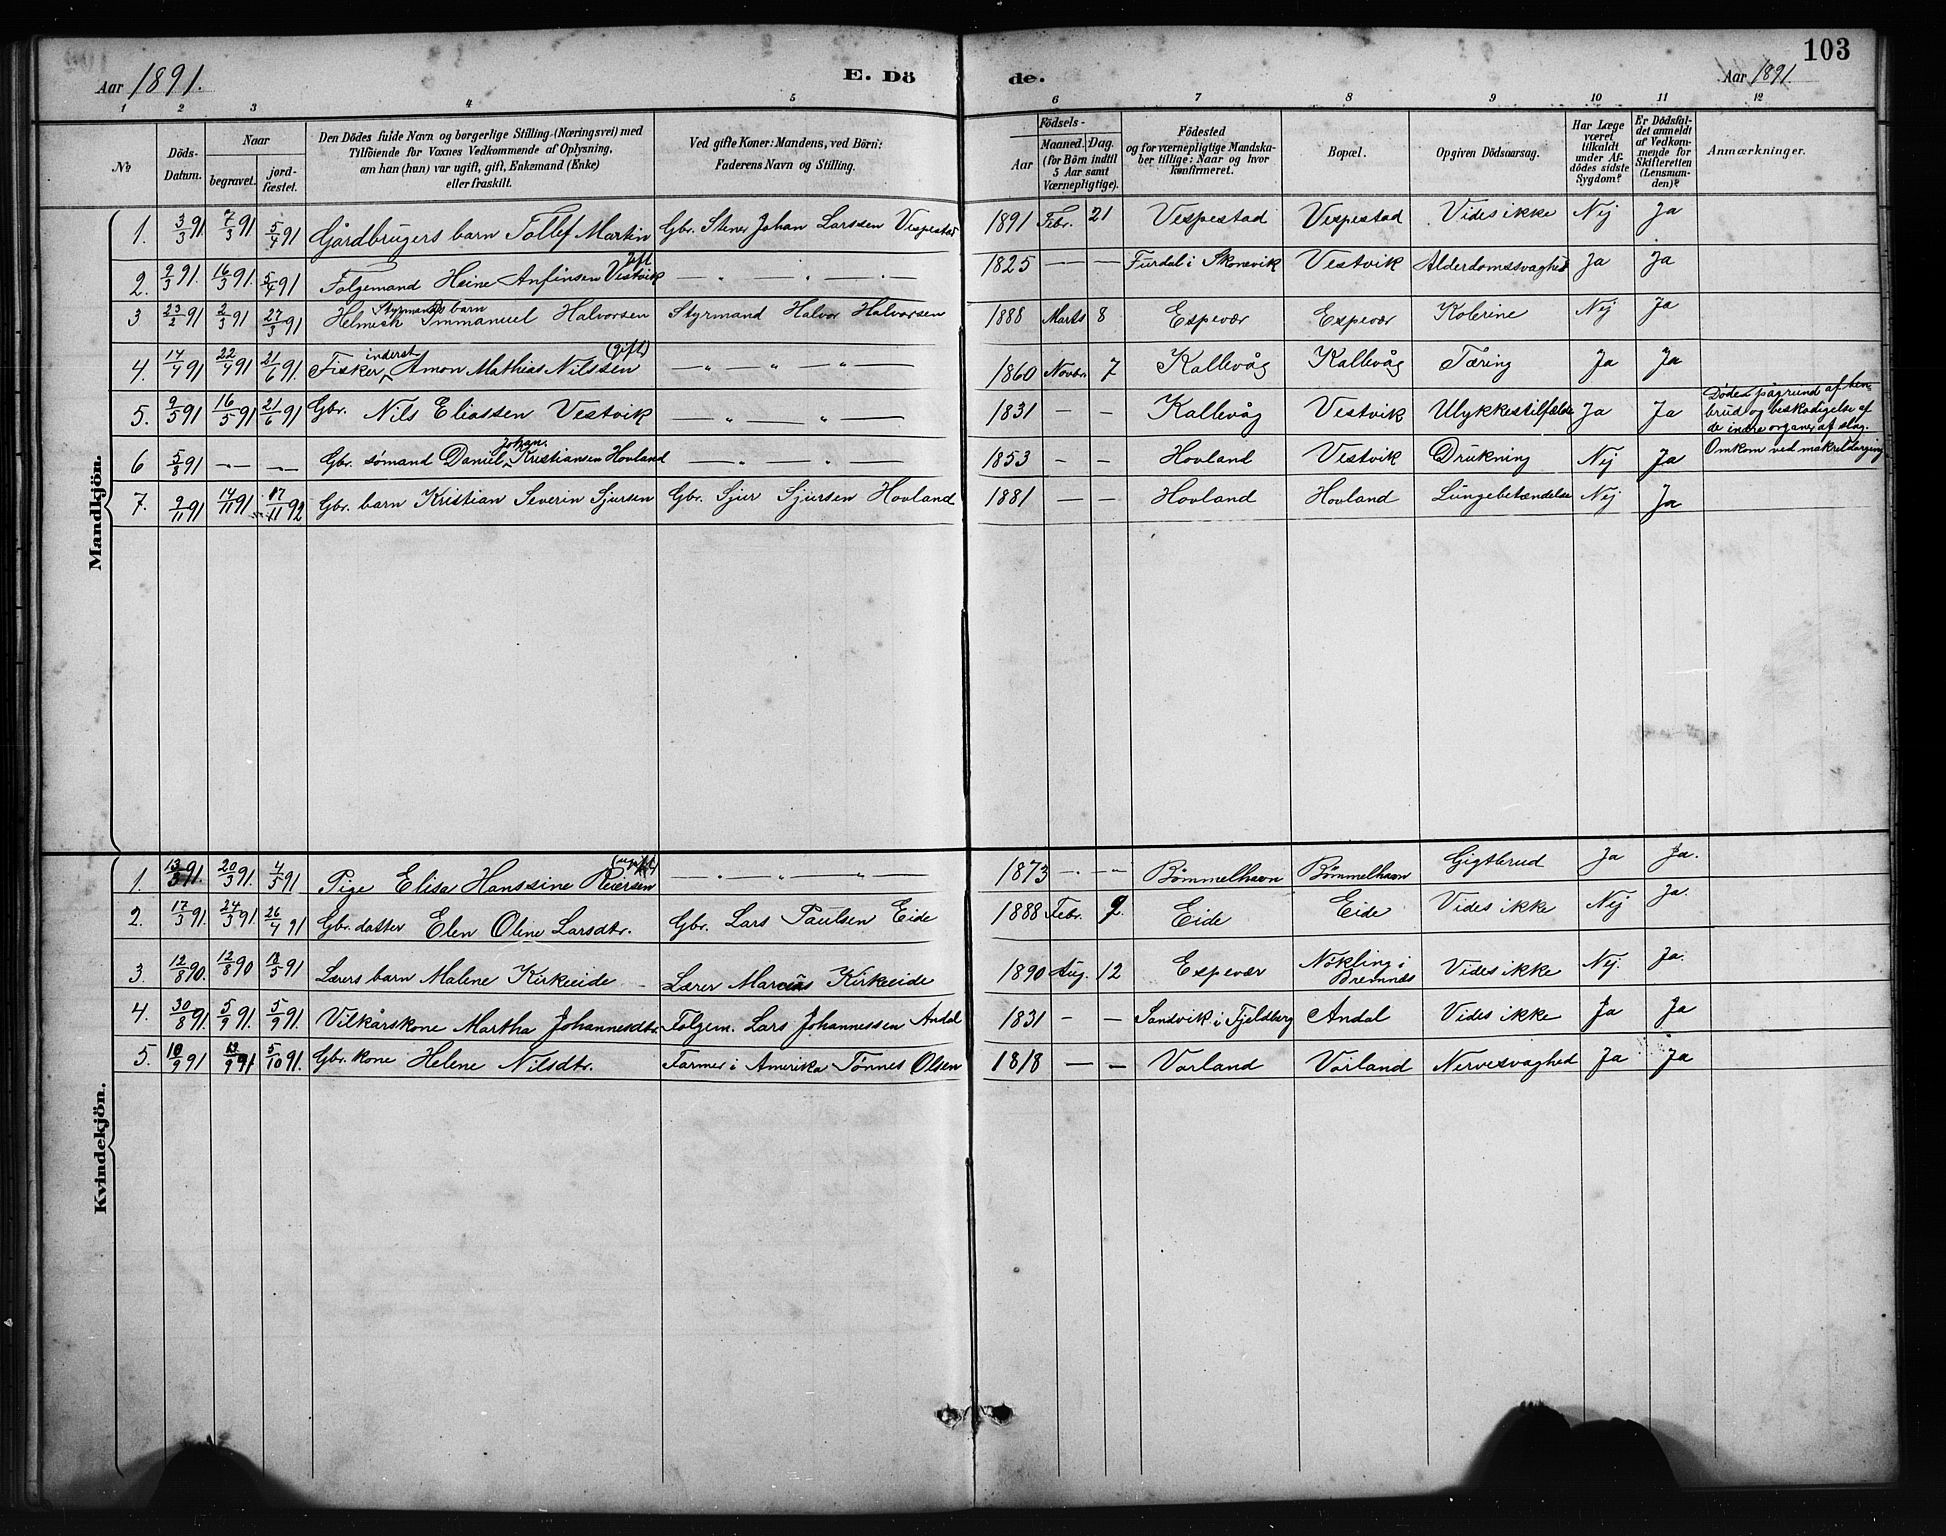 103
Aar 1891. E. Dö de. Aar 1891.
1 2 3 4 5 6 7 8 9 10 11 12
No
Döds-Datum.
Naar
begravet. jordfæstet.
Den Dödes fulde Navn og borgerlige Stilling (Næringsvei) med
Tilföiende for Voxnes Vedkommende af Oplysning,
om han (hun) var ugift, gift, Enkemand (Enke)
eller fraskilt.
Ved gifte Koner: Mandens, ved Börn:
Faderens Navn og Stilling.
Födsels-
Aar
Maaned. Dag.
(for Börn indtil
5 Aar samt
Værnepligtige).
Födested
og for værnepligtige Mandska-
ber tillige: Naar og hvor
konfirmeret.
Bopæl.
Opgiven Dödsaarsag.
Har Læge
været
tilkaldt
under Af-
dödes sidste
Sygdom?
Er Dödsful-
det anmeldt
af Vedkom-
mende for
Skifteretten
(Lensman-
den)?
Anmærkninger.
Mandkjön.
1. 3/3 91. 7/3 91 5/4 91 Gårdbrugers barn Tollef Martin Gbr. Stener Johan Larssen Vespestad 1891 Febr. 21 Vespestad Vespestad Vides ikke Nej Ja
2. 9/3 91. 16/3 91. 5/4 91 Folgemand Heine Anfinsen Vestvik gift — „ — 1825 — — Furdal i Skonevik Vestvik Alderdomssvaghed Ja Ja
3 23/2 91 2/3 91 27/3 91 Styrmands barn
Helmich Immanuel Halvorsen Styrmand Halvor Halvorsen 1888 Marts 8 Espevær Espevær Kolerine Nej Ja
4. 14/4 91 22/4 91 21/6 91. Fisker inderst Amon Mathias Nilssen (gift) — „ — „ — „ — 1860 Novbr. 7 Kallevåg Kallevåg Tæring Ja Ja
5. 9/5 91 16/5 91 21/6 91 Gbr. Nils Eliassen Vestvik — „ — „ — 1831 — — Kallevåg Vestvik Ulykkestilfælde Ja Ja Dødes pågrund af ben-
brud og beskadigelse af
de indre organer af slag.
6 5/8 91 — — Gbr. sømand Daniel Johan Kristiansen Hovland — „ — „ — 1853 — — Hovland Vestvik Drukning Nej Ja Omkom ved makreldorging
7. 9/11 91 14/11 91 17/11 92 Gbr. barn Kristian Severin Sjursen Gbr. Sjur Sjursen Hovland 1881 — — Hovland Hovland Lungebetændelse Nej Ja
Kvindekjön.
1. 13/3 91. 20/3 91. 4/5 91 Pige Elisa Hanssine Peersen (ugift) — „ — „ — „ — 1873 — — Bømmelhavn Bømmelhavn Gigtbrud Ja Ja.
2. 17/3 91. 24/3 91. 26/4 91 Gbr. datter Elen Oline Larsdtr. Gbr. Lars Paulsen Eide 1888 Febr. 9. Eide Eide Vides ikke Nej Ja.
3. 12/8 90. 12/8 90 /5 91 Lærers barn Malene Kirkeeide Lærer Marcus Kirkeeide 1890 Aug. 12 Espevær Nøkling i
Bremnes Vides ikke Nej. Ja.
4. 30/8 91. 5/9 91. 5/9 91. Vilkårskone Martha Johannesdtr. Folgem. Lars Johannessen Andal 1831 — — Sandvik i Fjeldberg Andal Vides ikke Ja Ja
5. 10/9 91 /9 91 5/10 91. Gbr. kone Helene Nilsdtr. Farmer i Amerika Tønnes Olsen 1818 — — Vorland Vorland Nervesvaghed Ja Ja